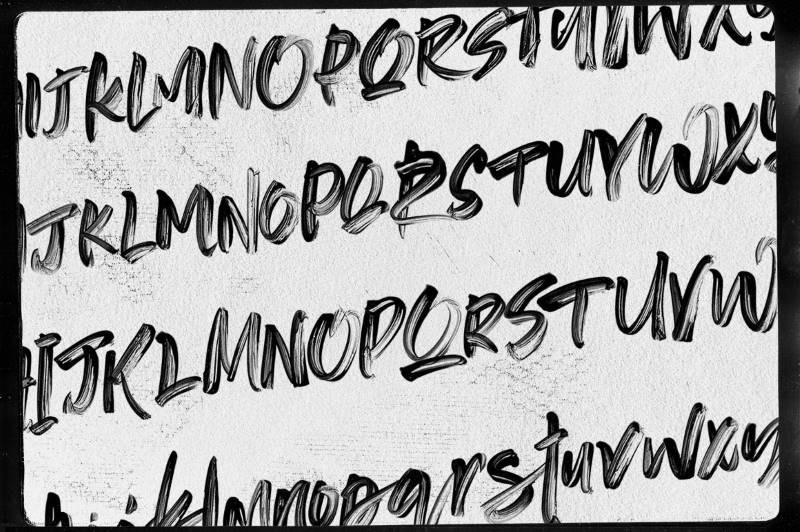 IJKLMNOPQRSTUVWXY
IJKLMNOPQRSTUVWX
HIJKLMNOPQRSTUVW
hijklmnopqrstuvwxy